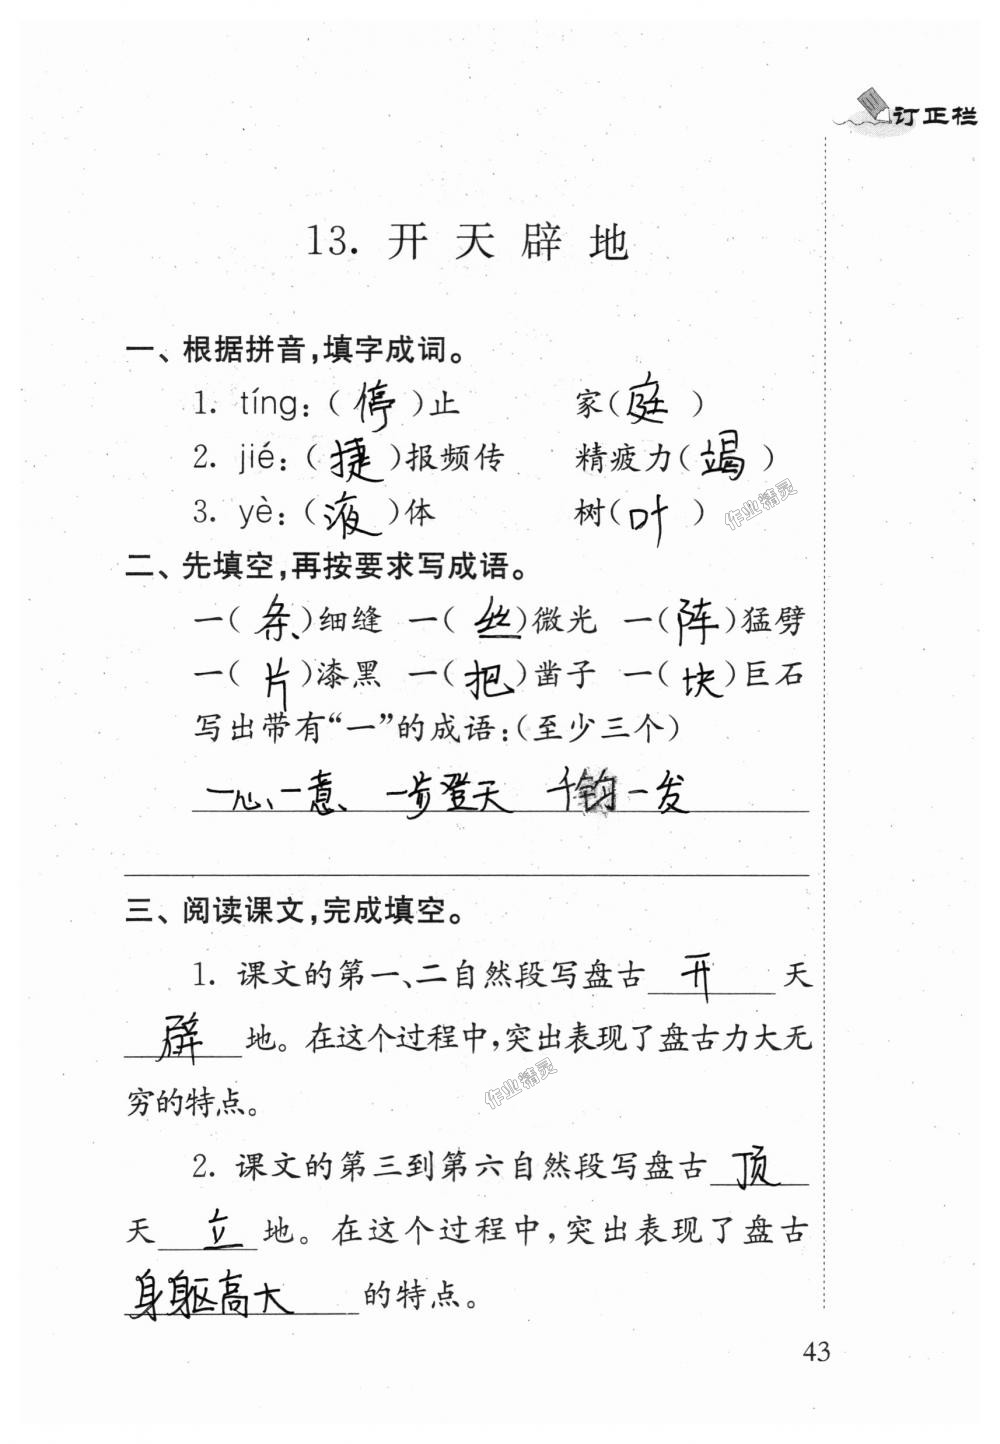 订正栏
13. 开天辟地
一、根据拼音,填字成词。
1. tíng:(停)止 家(庭)
2. jié:(捷)报频传 精疲力(竭)
3. yè:(液)体 树(叶)
作业精灵
二、先填空,再按要求写成语。
一(条)细缝 一(丝)微光 一(阵)猛劈
一(片)漆黑 一(把)凿子 一(块)巨石
写出带有“一”的成语:(至少三个)
一心一意、 一步登天 千钧一发
三、阅读课文,完成填空。
1. 课文的第一、二自然段写盘古 开 天
辟 地。在这个过程中,突出表现了盘古力大无
穷的特点。
作业精灵
2. 课文的第三到第六自然段写盘古 顶
天 立 地。在这个过程中,突出表现了盘古
身躯高大 的特点。
43